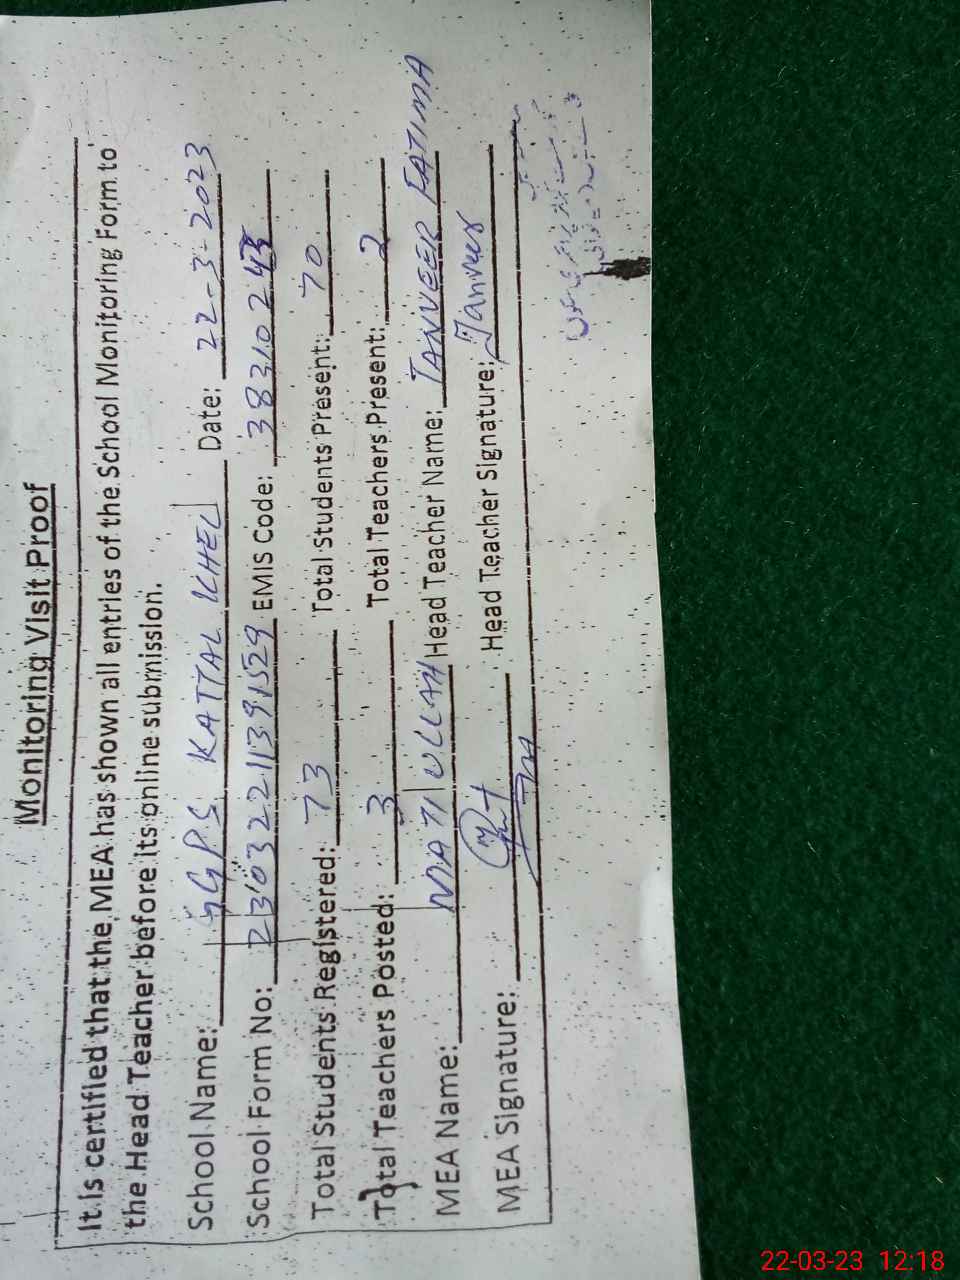 Monitoring Visit Proof
It is certified that the MEA has shown all entries of the School Monitoring Form to
the Head Teacher before its online submission.
School Name: GGPS KATTAL KHEL Date: 22-3-2023
School Form No: 23032211391529 EMIS Code: 38310243
Total Students Registered: 73 Total Students Present: 70
Total Teachers Posted: 3 Total Teachers Present: 2
MEA Name: MATI ULLAH Head Teacher Name: TANVEER FATIMA
MEA Signature: Head Teacher Signature: Tanveer
22-03-23 12:18